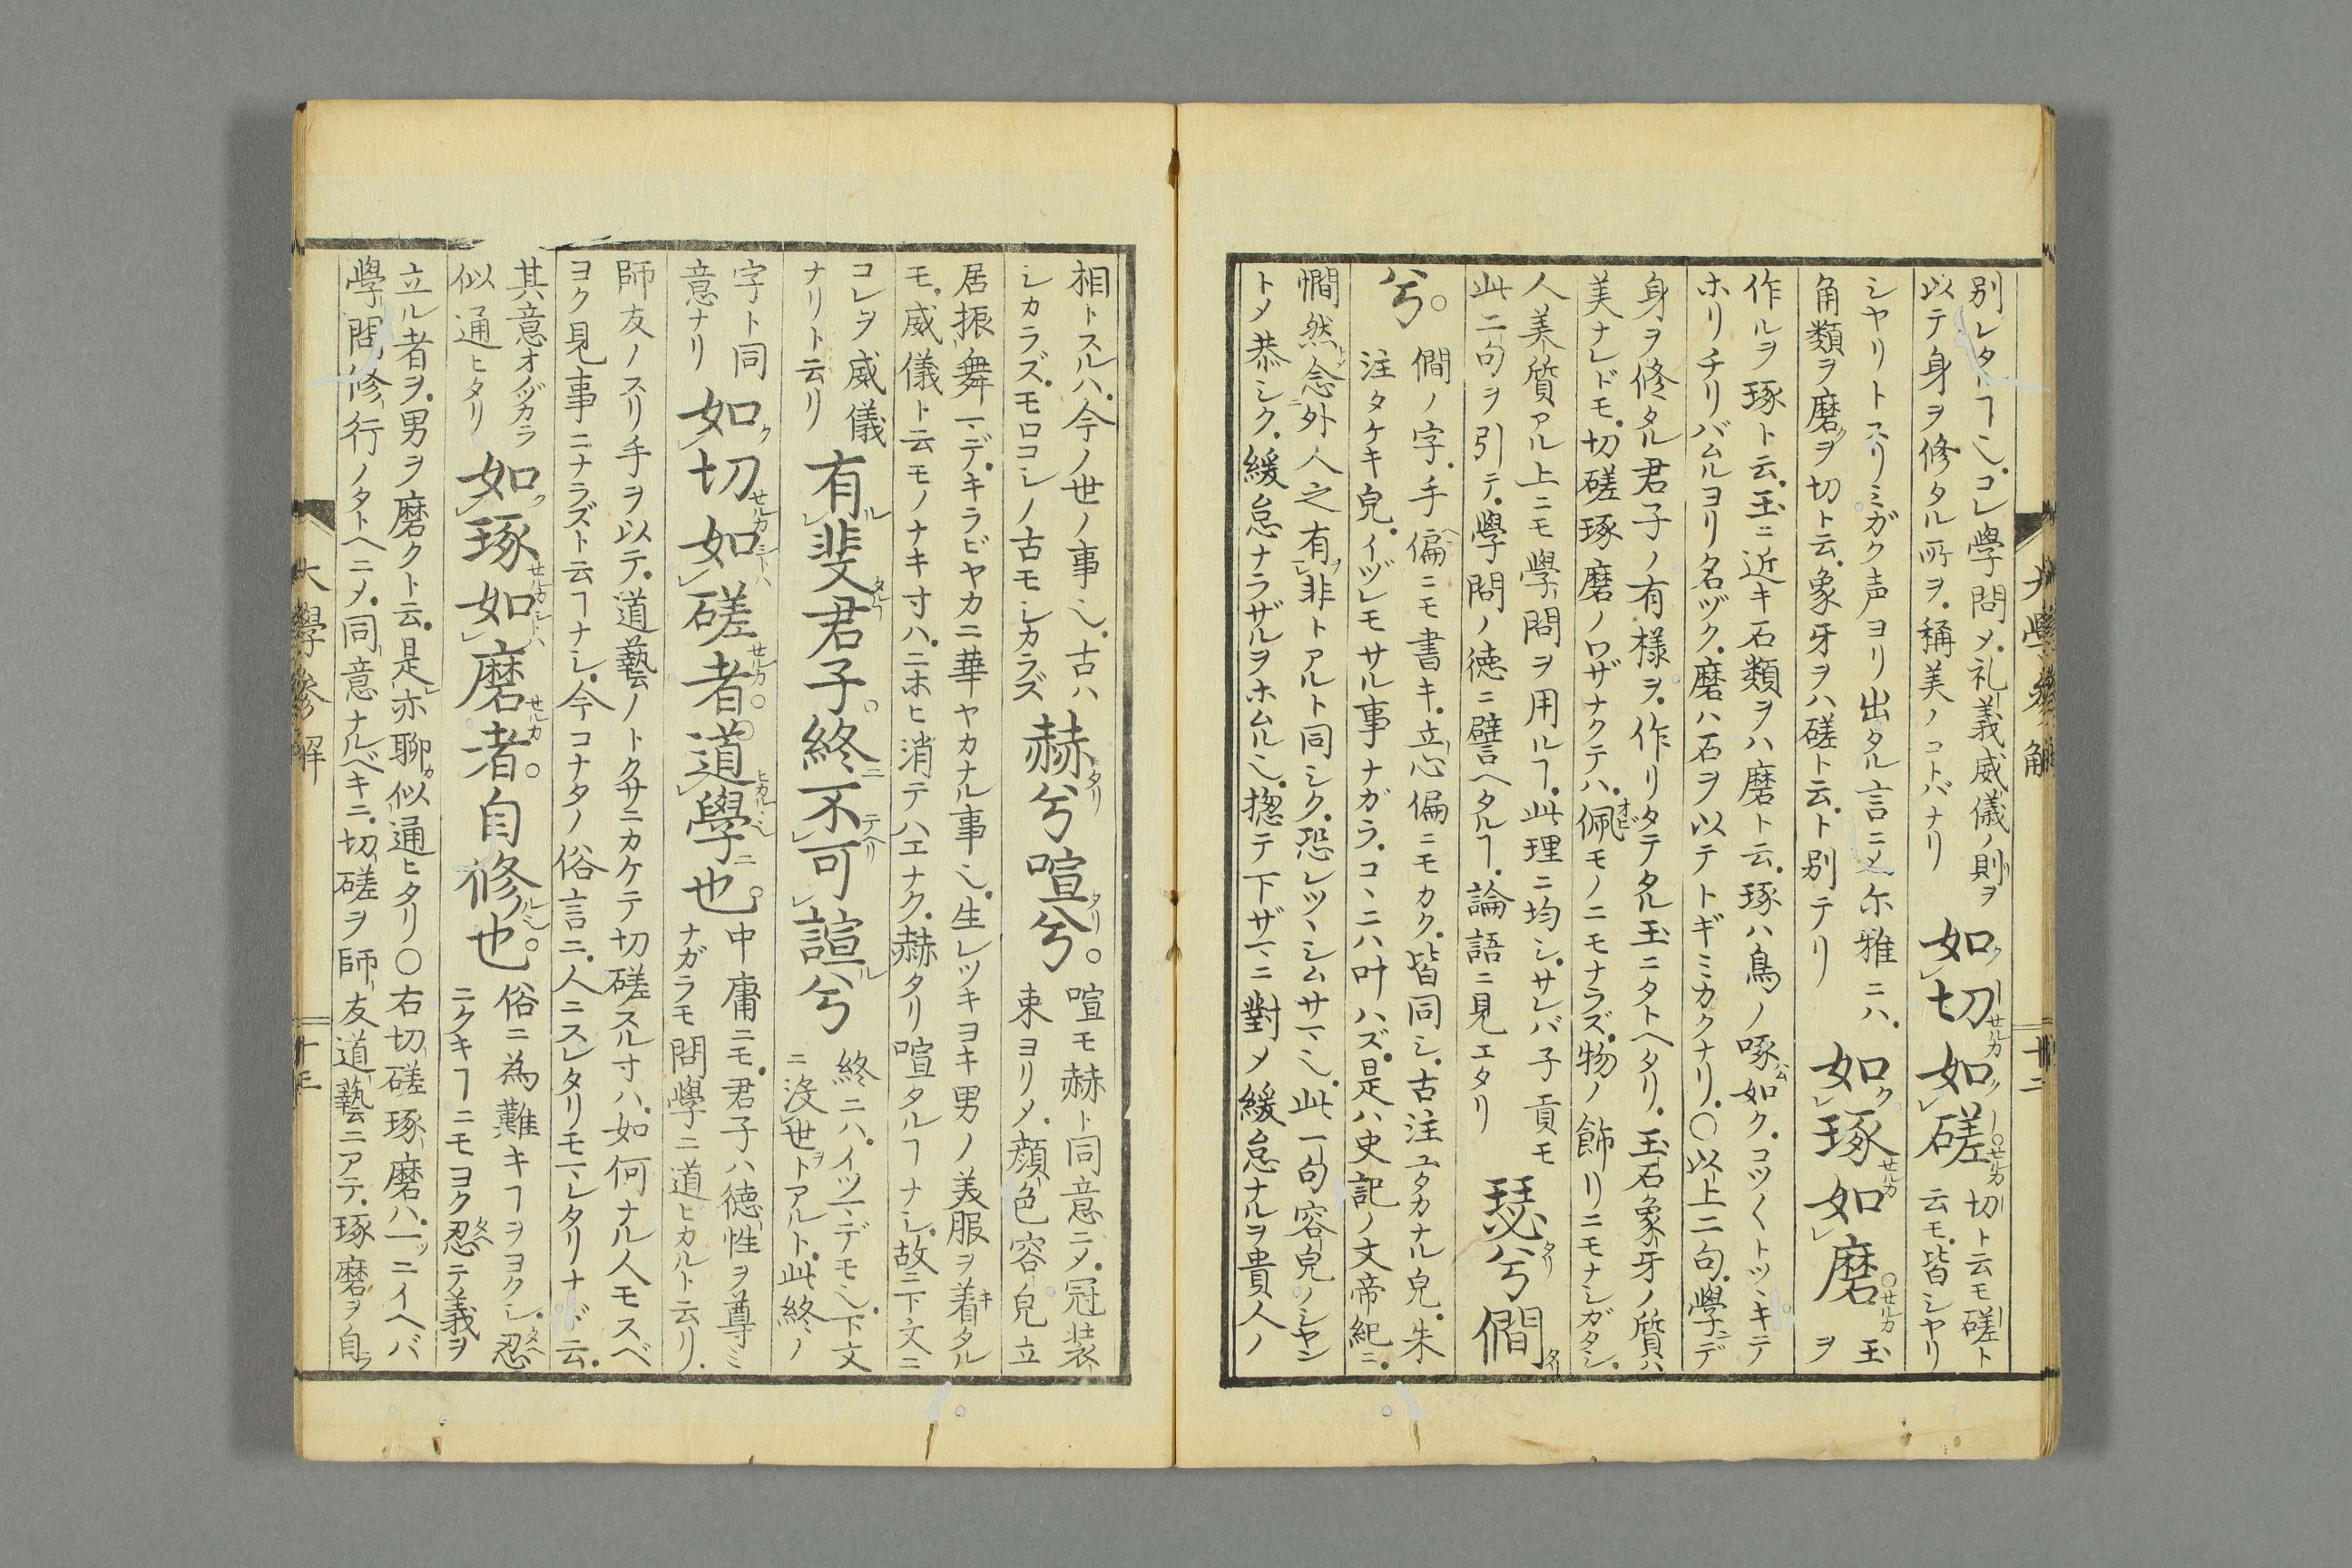 大學參解
十二
別レタルヿ也。コレ學問〆。礼義威儀ノ則ヲ
以テ身ヲ修タル所ヲ。稱美ノコトバナリ
如切如磋
切ト云モ磋ト
云モ。皆シヤリ
シヤリトスリミガク声ヨリ出タル言ニ〆尓雅ニハ。
角類ヲ磨ヲ切ト云。象牙ヲハ磋ト云。ト別テリ
如琢如磨
玉
ヲ
作ルヲ琢ト云。玉ニ近キ石類ヲハ磨ト云。琢ハ鳥ノ啄如ク。コツ〱トツヽキテ
ホリチリバムルヨリ名ヅク。磨ハ石ヲ以テトギミカクナリ。○以上二句。學ンデ
身ヲ修タル君子ノ有様ヲ。作リタテタル玉ニタトヘタリ。玉石象牙ノ質ハ
美ナレドモ。切磋琢磨ノワザナクテハ。佩モノニモナラズ。物ノ飾リニモナシガタシ。
人美質アル上ニモ學問ヲ用ルヿ。此理ニ均シ。サレバ子貢モ
此二句ヲ引テ。學問ノ徳ニ譬ヘタルヿ。論語ニ見エタリ
瑟兮僩
兮。
僩ノ字。手偏ニモ書キ。立心偏ニモカク。皆同シ。古注ユタカナル皃。朱
注タケキ皃。イヅレモサル事ナガラ。コヽニハ叶ハズ。是ハ史記ノ文帝紀ニ。
憪然念外人之有非トアルト同シク。恐レツヽシムサマ也。此一句容皃ノシヤン
ト〆恭シク。緩怠ナラザルヲホムル也。揔テ下ザマニ對〆緩怠ナルヲ貴人ノ
相トスルハ。今ノ世ノ事也。古ハ
シカラズ。モロコシノ古モシカラズ
赫兮喧兮。
喧モ赫ト同意ニ〆。冠装
束ヨリ〆。顔色容皃立
居振舞マデ。キラビヤカニ華ヤカナル事也。生レツキヨキ男ノ美服ヲ着タル
モ。威儀ト云モノナキ寸ハ。ニホヒ消テハエナク。赫タリ喧タルヿナシ。故ニ下文ニ
コレヲ威儀
ナリト云リ
有斐君子。終不可諠兮
終ニハ。イツマデモ也。下文
ニ没世トアルト。此終ノ
字ト同
意ナリ
如切如磋者。道學也。
中庸ニモ。君子ハ徳性ヲ尊ミ
ナガラモ問學ニ道ビカルト云リ。
師友ノスリ手ヲ以テ。道藝ノトクサニカケテ切磋スル寸ハ。如何ナル人モスベ
ヨク見事ニナラズト云ヿナシ。今コナタノ俗言ニ。人ニスレタリモマレタリナド云。
其意オノヅカラ
似通ヒタリ
如琢如磨者。自修也。
俗ニ為難キヿヲヨクシ。忍
ニクキヿニモヨク忍テ義ヲ
立ル者ヲ。男ヲ磨クト云。是亦聊似通ヒタリ○右切磋琢磨ハ。一ツニイヘバ
學問修行ノタトヘニ〆。同意ナルベキニ。切磋ヲ師友道藝ニアテ。琢磨ヲ自ラ
大學參解
十三